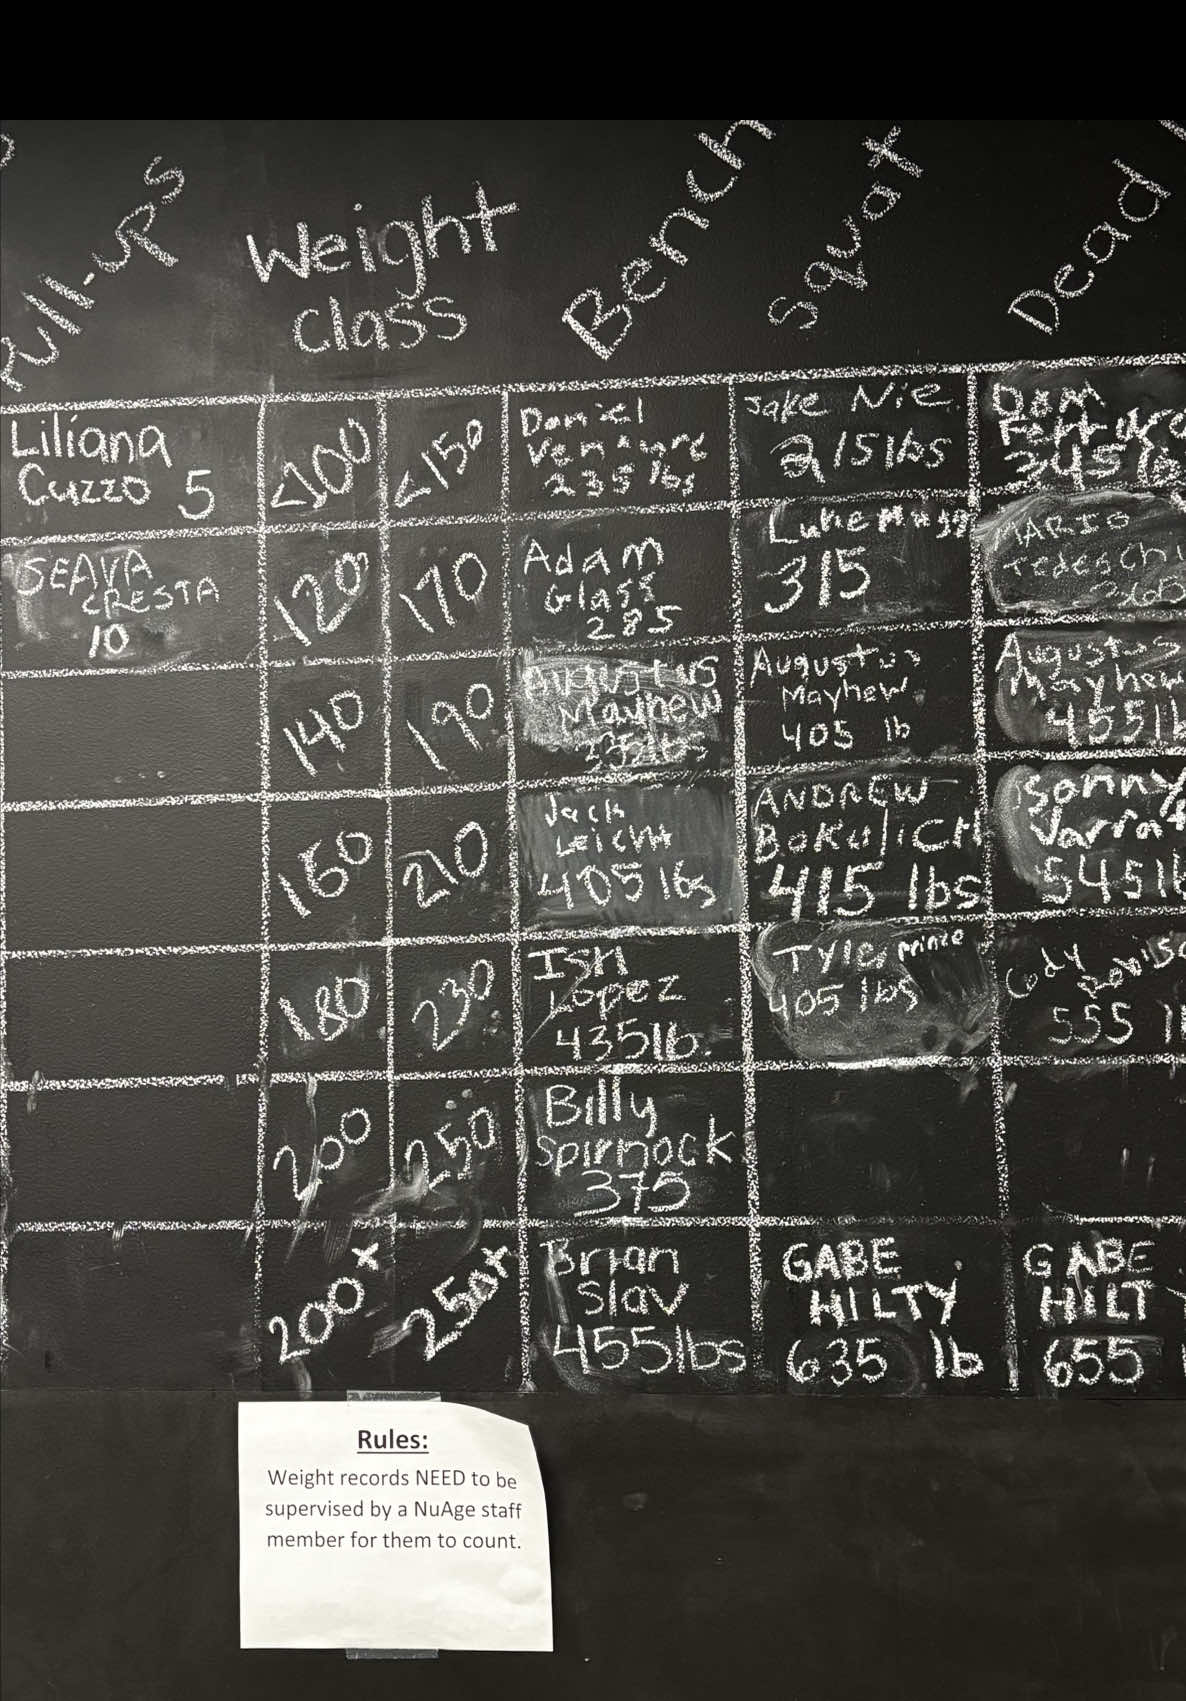 Pull-ups
Weight
Class
Bench
Squat
Dead
Liliana
Cuzzo 5
<100
<150
Daniel
235 lbs
Jake Nie
215 lbs
Dom
345 lb
SEAVA
CRESTA
10
120
170
Adam
Glass
285
Luke
315
MARIO
Tedeschi
365
140
190
Augustus
Mayhew
Augustus
Mayhew
405 lb
Augustus
Mayhew
455 lb
160
210
Jack
Leicht
405 lbs
ANDREW
BOKULICH
415 lbs
Sonny
545 lb
180
230
ISH
Lopez
435 lb.
Tyler prince
405 lbs
Cody
555 l
200
250
Billy
Spirnock
375
200+
250+
Brian
Slav
455 lbs
GABE
HILTY
635 lb
GABE
HILT
655
Rules:
Weight records NEED to be
supervised by a NuAge staff
member for them to count.